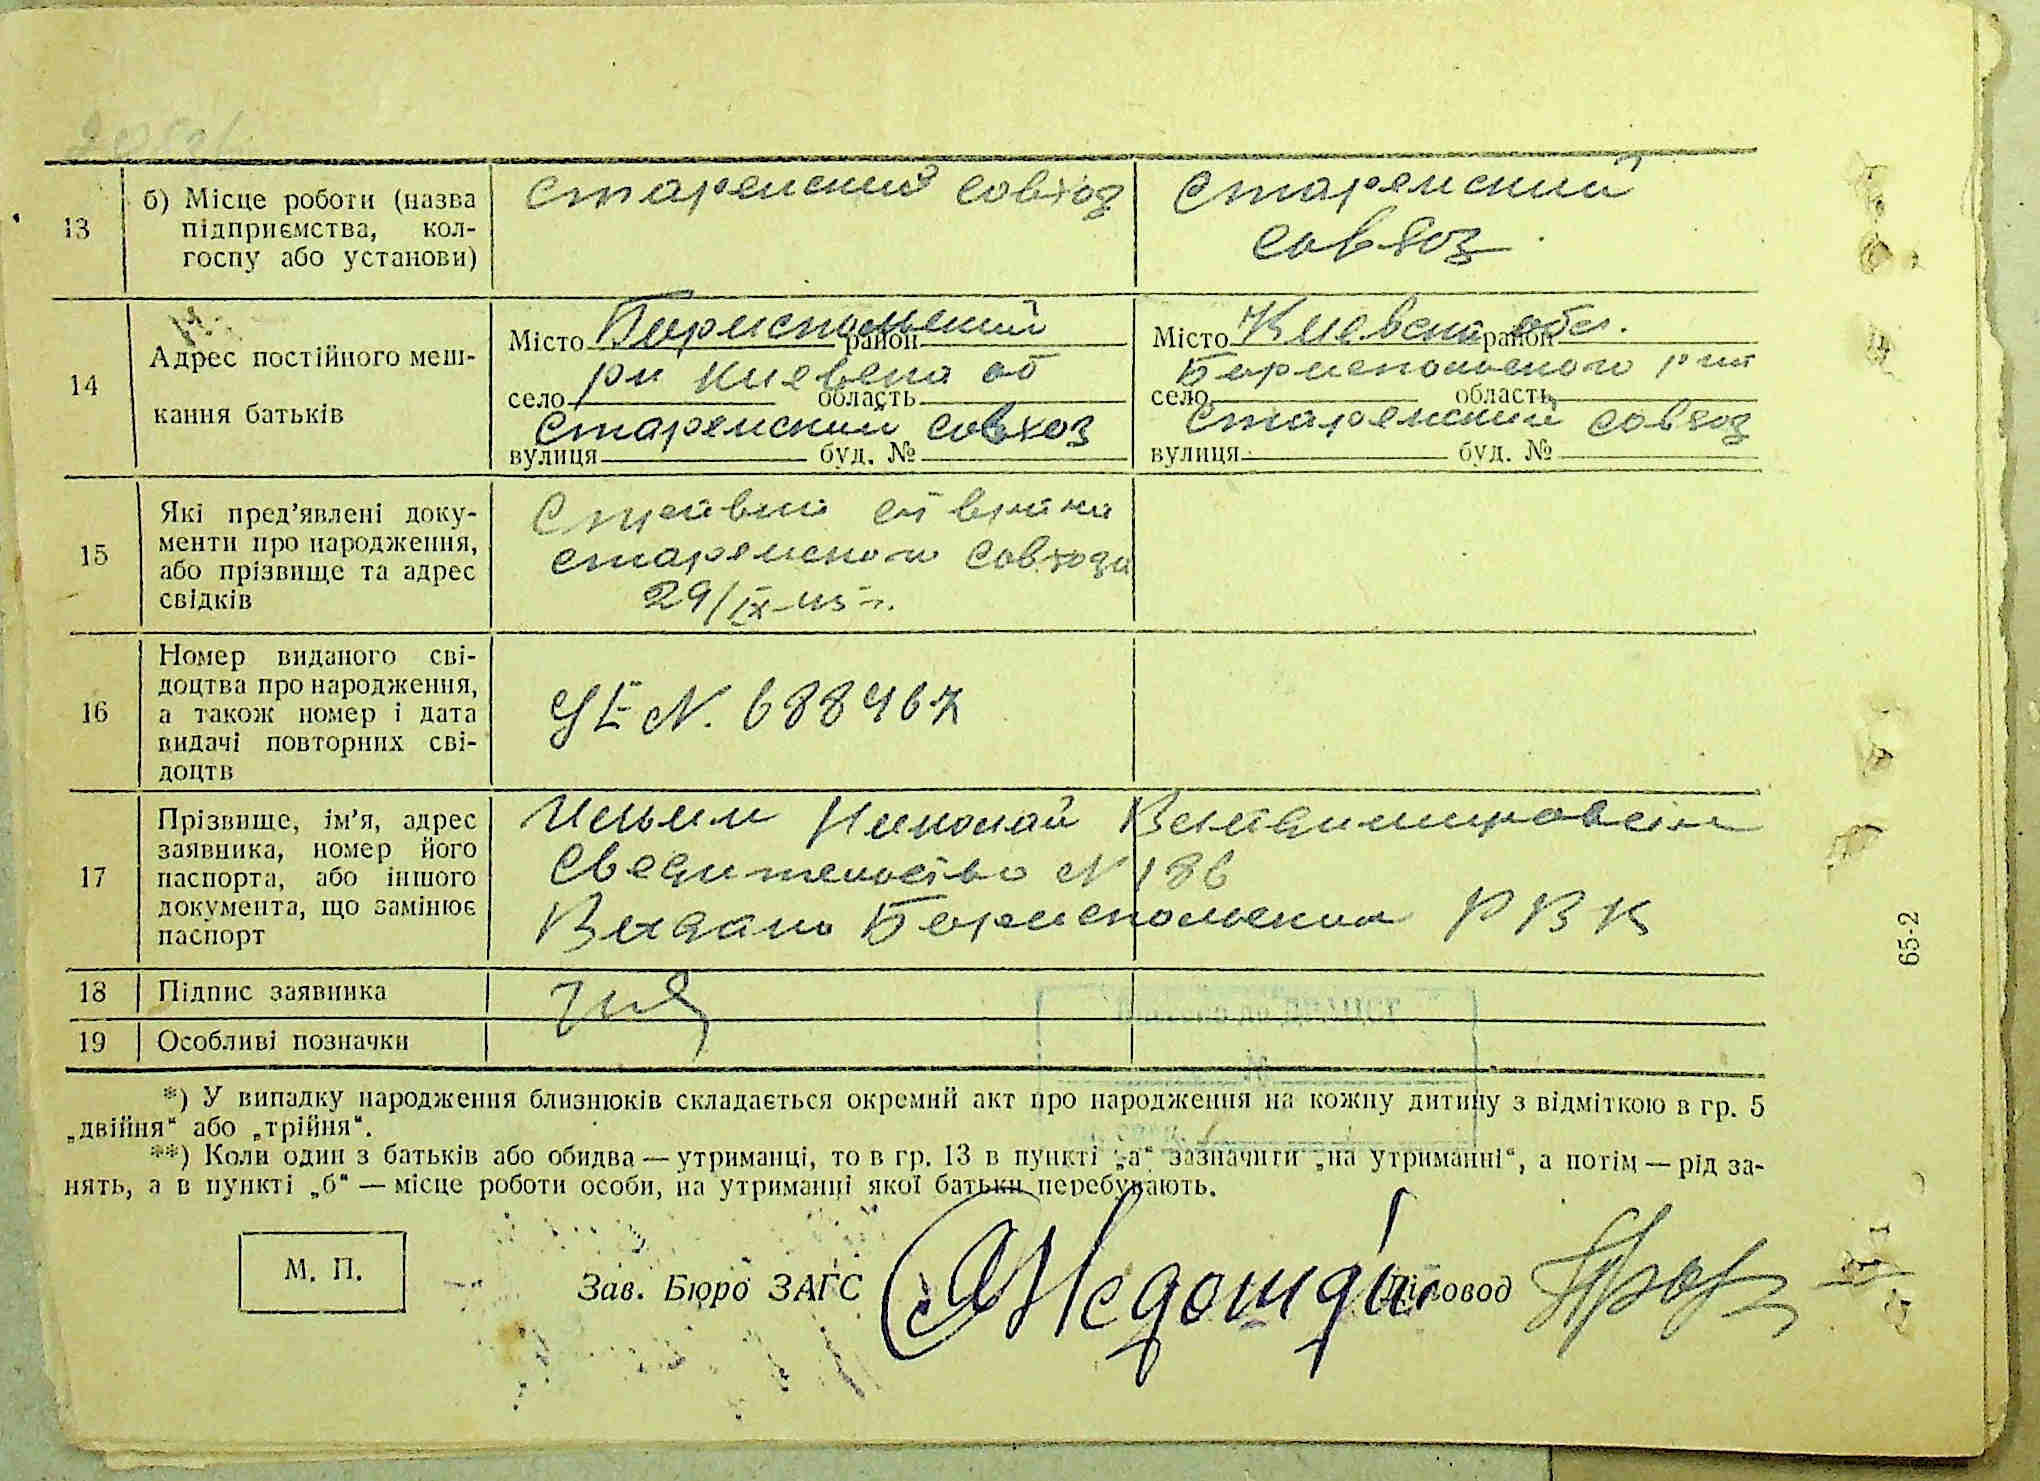 13
б) Місце роботи (назва
підприємства, кол-
госпу або установи)
старенский совхоз
старенский
совхоз
14
Адрес постійного меш-
кання батьків
Місто Бориспольский район
ри Киевска об
село область
старенский совхоз
вулиця буд. №
Місто Киевска обл. район
Бориспольского р
село область
старенский совхоз
вулиця буд. №
15
Які пред’явлені доку-
менти про народження,
або прізвище та адрес
свідків
старенского совхоза
29/IX-45 г.
16
Номер виданого сві-
доцтва про народження,
а також номер і дата
видачі повторних сві-
доцтв
УЕ N. 688467
17
Прізвище, ім’я, адрес
заявника, номер його
паспорта, або іншого
документа, що замінює
паспорт
Николай Владимирович
Свидетельство N 186
Выдано Бориспольским РВК
18
Підпис заявника
19
Особливі позначки
*) У випадку народження близнюків складається окремий акт про народження на кожну дитину з відміткою в гр. 5
„двійня“ або „трійня“.
**) Коли один з батьків або обидва — утриманці, то в гр. 13 в пункті „а“ зазначити „на утриманні“, а потім — рід за-
нять, а в пункті „б“ — місце роботи особи, на утриманці якої батьки перебувають.
М. П.
Зав. Бюро ЗАГС
Діловод
65-2